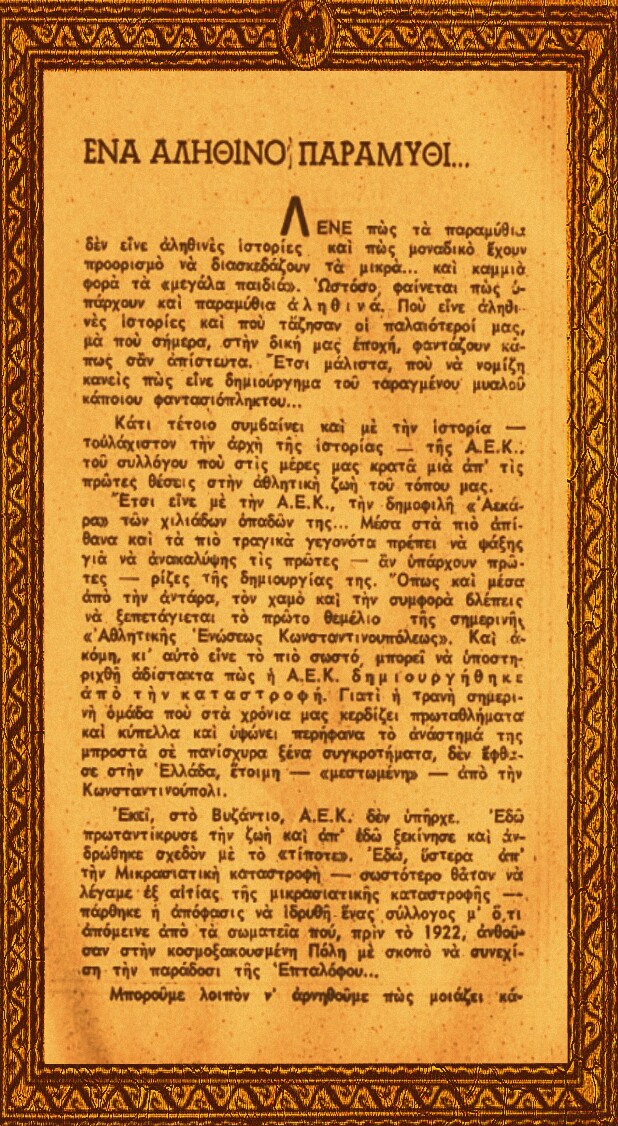 ΕΝΑ ΑΛΗΘΙΝΟ ΠΑΡΑΜΥΘΙ...
ΛΕΝΕ πὼς τὰ παραμύθια
δὲν εἶνε ἀληθινὲς ἱστορίες καὶ πὼς μοναδικὸ ἔχουν
προορισμὸ νὰ διασκεδάζουν τὰ μικρὰ... καὶ καμμιὰ
φορὰ τὰ «μεγάλα παιδιά». Ὡστόσο φαίνεται πὼς ὑ-
πάρχουν καὶ παραμύθια ἀληθινά. Ποὺ εἶνε ἀληθι-
νὲς ἱστορίες καὶ ποὺ τἄζησαν οἱ παλαιότεροί μας,
μὰ ποὺ σήμερα, στὴν δική μας ἐποχή, φαντάζουν κά-
πως σὰν ἀπίστευτα. Ἔτσι μάλιστα, ποὺ νὰ νομίζη
κανεὶς πὼς εἶνε δημιούργημα τοῦ ταραγμένου μυαλοῦ
κάποιου φαντασιόπληκτου...
Κάτι τέτοιο συμβαίνει καὶ μὲ τὴν ἱστορία —
τοὐλάχιστον τὴν ἀρχὴ τῆς ἱστορίας — τῆς Α.Ε.Κ.:
τοῦ συλλόγου ποὺ στὶς μέρες μας κρατᾶ μιὰ ἀπ' τὶς
πρῶτες θέσεις στὴν ἀθλητικὴ ζωὴ τοῦ τόπου μας.
Ἔτσι εἶνε μὲ τὴν Α.Ε.Κ., τὴν δημοφιλῆ «Ἀεκά-
ρα» τῶν χιλιάδων ὀπαδῶν της... Μέσα στὰ πιὸ ἀπί-
θανα καὶ τὰ πιὸ τραγικὰ γεγονότα πρέπει νὰ ψάξης
γιὰ νὰ ἀνακαλύψης τὶς πρῶτες — ἂν ὑπάρχουν πρῶ-
τες — ρίζες τῆς δημιουργίας της. Ὅπως καὶ μέσα
ἀπὸ τὴν ἀντάρα, τὸν χαμὸ καὶ τὴν συμφορὰ βλέπεις
νὰ ξεπετάγιεται τὸ πρῶτο θεμέλιο τῆς σημερινῆς
«Ἀθλητικῆς Ἑνώσεως Κωνσταντινουπόλεως». Καὶ ἀ-
κόμη, κι' αὐτὸ εἶνε τὸ πιὸ σωστό, μπορεῖ νὰ ὑποστη-
ριχθῆ ἀδίστακτα πὼς ἡ Α.Ε.Κ. δημιουργήθηκε
ἀπὸ τὴν καταστροφή. Γιατὶ ἡ τρανὴ σημερι-
νὴ ὁμάδα ποὺ στὰ χρόνια μας κερδίζει πρωταθλήματα
καὶ κύπελλα καὶ ὑψώνει περήφανα τὸ ἀνάστημά της
μπροστὰ σὲ πανίσχυρα ξένα συγκροτήματα, δὲν ἔφθα-
σε στὴν Ἑλλάδα, ἕτοιμη — «μεστωμένη» — ἀπὸ τὴν
Κωνσταντινούπολι.
Ἐκεῖ, στὸ Βυζάντιο, Α.Ε.Κ. δὲν ὑπῆρχε. Ἐδῶ
πρωταντίκρυσε τὴν ζωὴ καὶ ἀπ' ἐδῶ ξεκίνησε καὶ ἀν-
δρώθηκε σχεδὸν μὲ τὸ «τίποτε». Ἐδῶ, ὕστερα ἀπ'
τὴν Μικρασιατικὴ καταστροφὴ — σωστότερο θἄταν νὰ
λέγαμε ἐξ αἰτίας τῆς μικρασιατικῆς καταστροφῆς —
πάρθηκε ἡ ἀπόφασις νὰ ἱδρυθῆ ἕνας σύλλογος μ' ὅ,τι
ἀπόμεινε ἀπὸ τὰ σωματεῖα πού, πρὶν τὸ 1922, ἀνθοῦ-
σαν στὴν κοσμοξακουσμένη Πόλη μὲ σκοπὸ νὰ συνεχί-
ση τὴν παράδοσι τῆς Ἑπταλόφου...
Μποροῦμε λοιπὸν ν' ἀρνηθοῦμε πὼς μοιάζει κά-